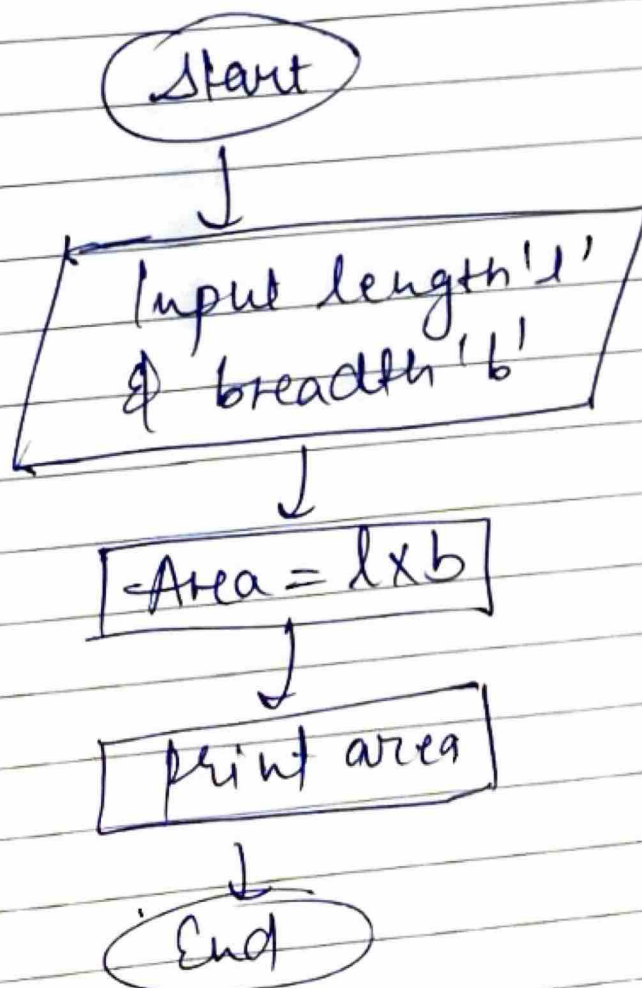 Start
Input length 'l'
& breadth 'b'
Area = l x b
print area
End